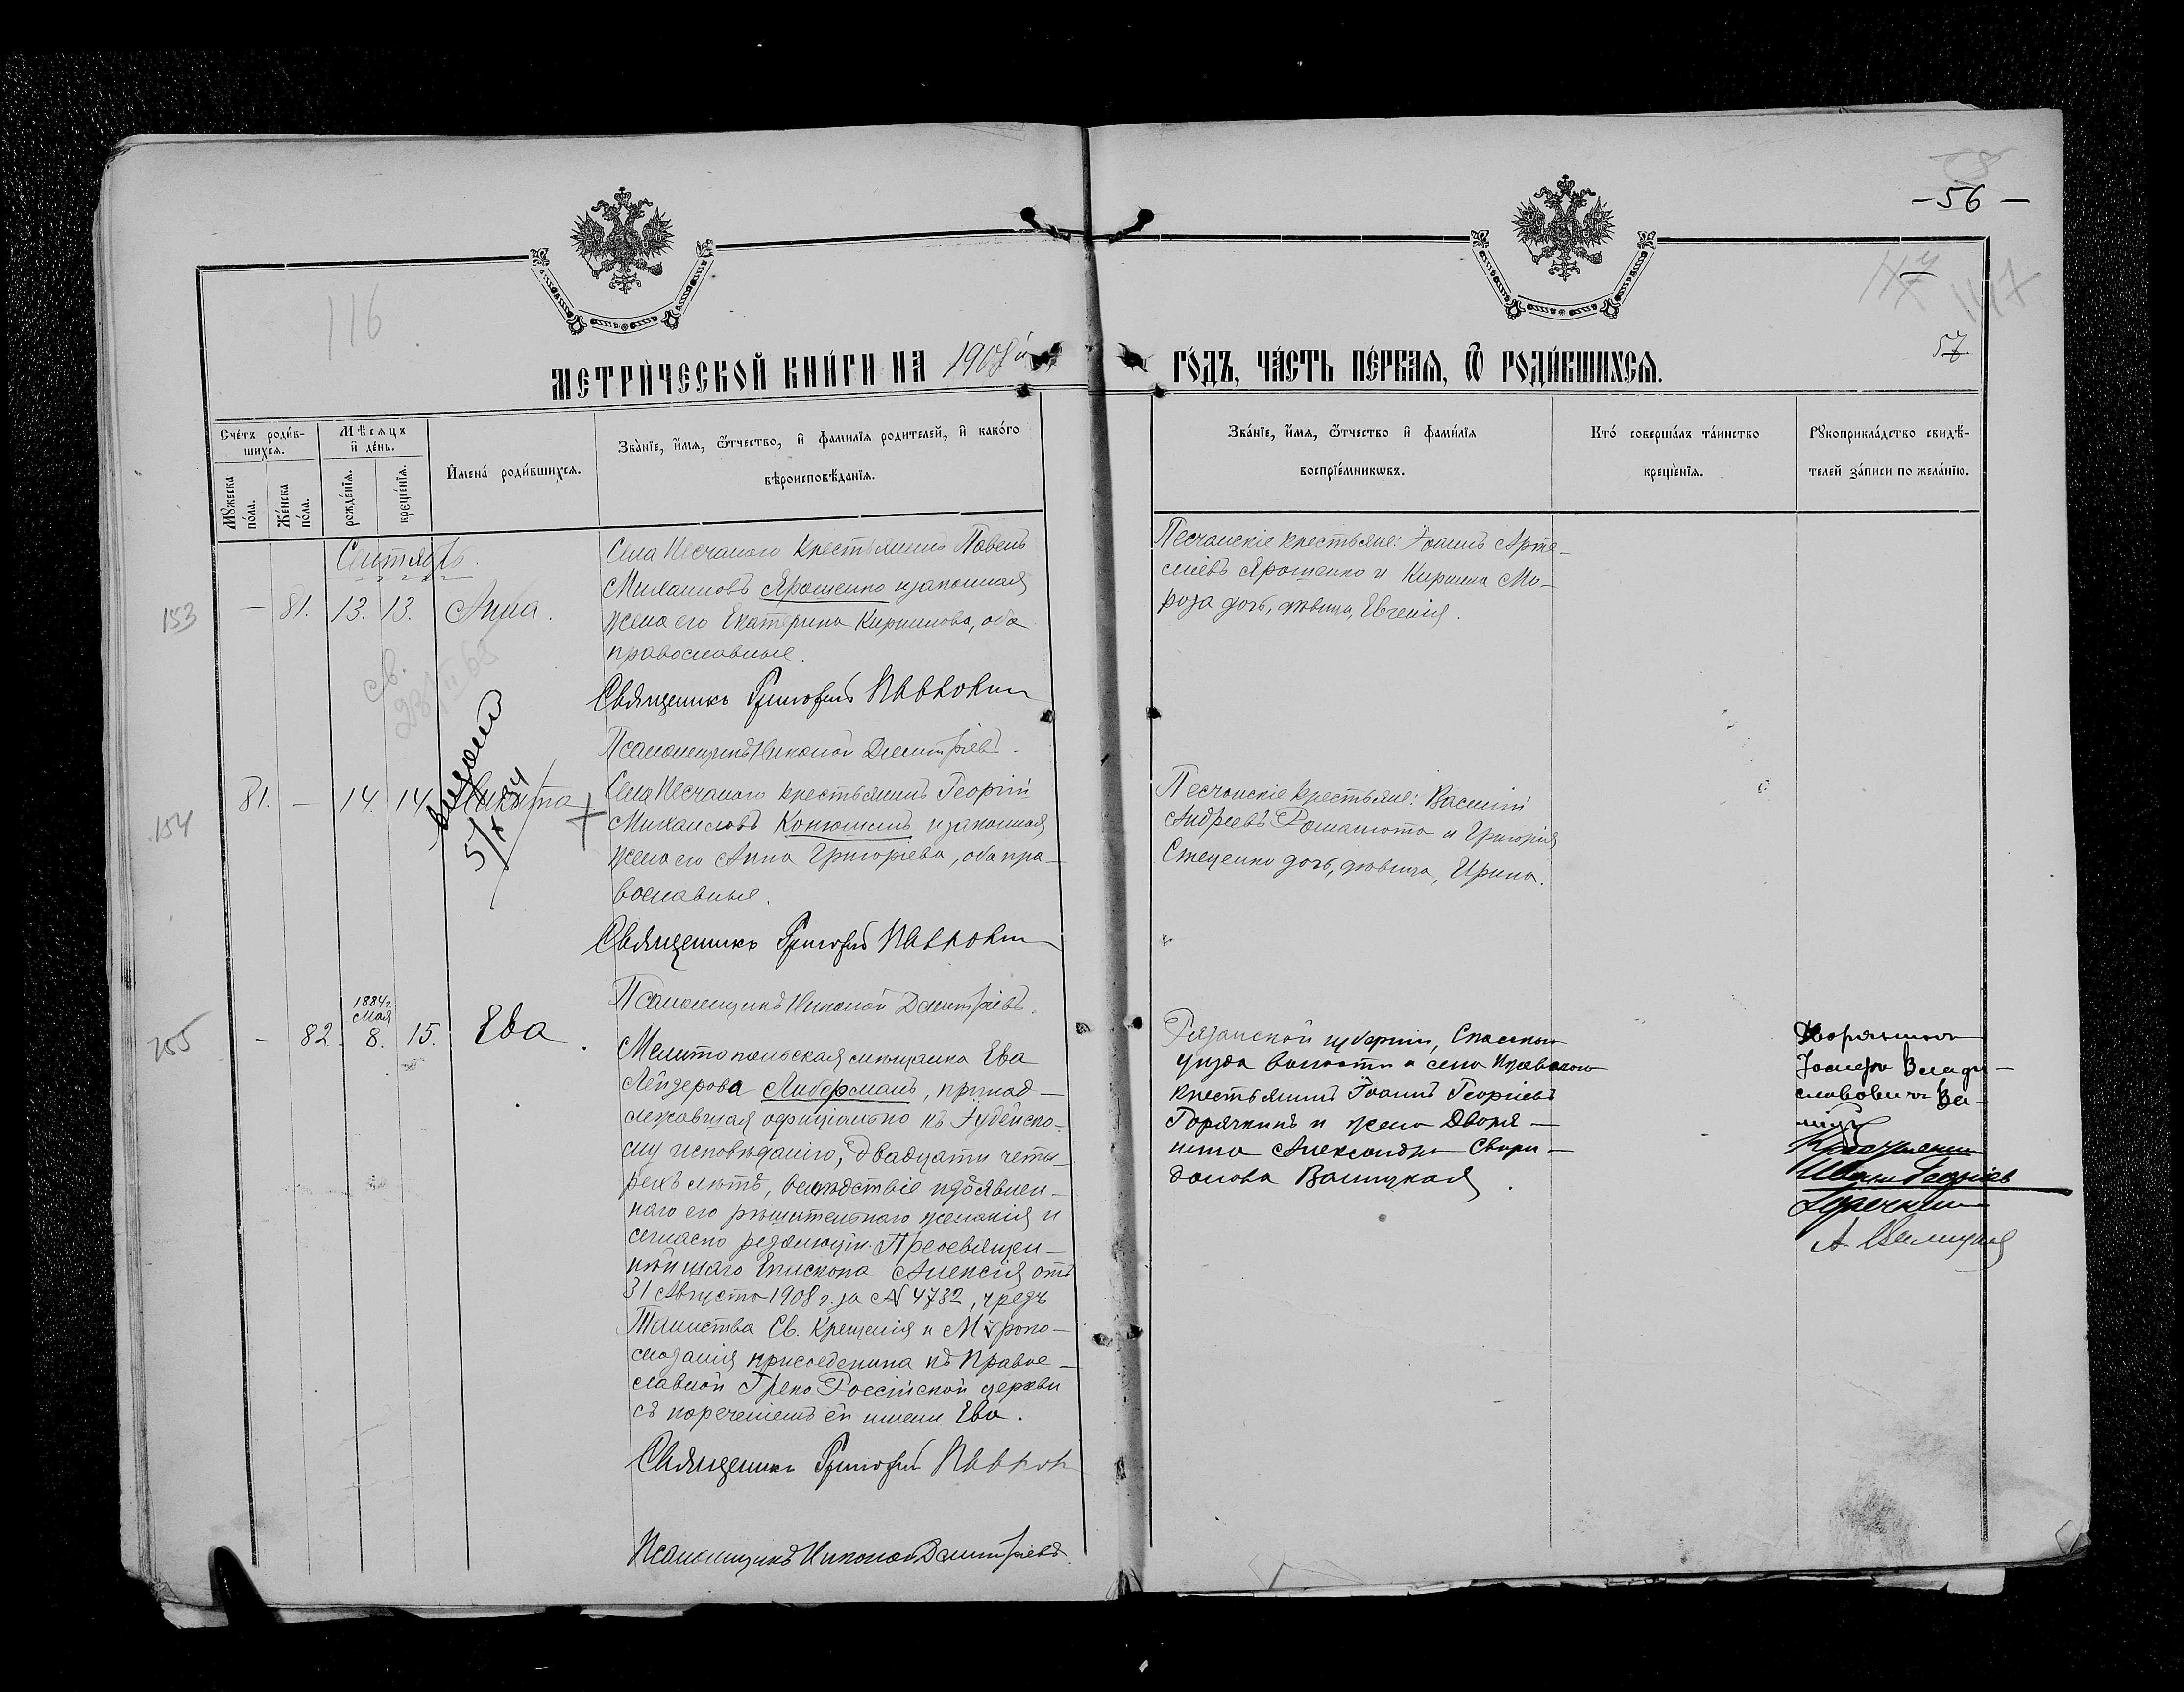 58
-56-
116
117
57.
МЕТРИЧЕСКОЙ КНИГИ НА 1908й ГОДЪ, ЧАСТЬ ПЕРВАЯ, Ѿ РОДИВШИХСЯ.
Счетъ родив-
шихся.
Мужеска
пола.
Женска
пола.
Мѣсяцъ
и день.
рожденія.
крещенія.
Имена родившихся.
Званіе, имя, ѿтчество, и фамилія родителей, и какого
вѣроисповѣданія.
Званіе, имя, ѿтчество и фамилія
воспріемникωвъ.
Кто совершалъ таинство
крещенія.
Рукоприкладство свидѣ-
телей записи по желанію.
Сентябрь.
153
— 81. 13. 13. Анна.
Села Песчаного крестьянинъ Павелъ
Михаиловъ Ярошенко и законная
жена его Екатерина Кириллова, оба
православные.
Священникъ Григорій
Псаломщикъ Николай Димитріевъ.
Песчанскіе крестьяне: Іоаннъ Арте-
міевъ Ярошенко и Кирилла Мо-
роза дочь, дѣвица, Евгенія.
154
81. — 14. 14. Никита
Села Песчаного крестьянинъ Георгій
Михаиловъ Конюшенъ и законная
жена его Анна Григоріева, оба пра-
вославные.
Священникъ Григорій
Псаломщикъ Николай Димитріевъ.
Песчанскіе крестьяне: Василій
Андреевъ Романюта и Григорія
Стеценко дочь, дѣвица, Ирина.
155
— 82. 1884г. Мая 8. 15. Ева
Мелитопольская мѣщанка Ева
Лейзерова Либерманъ, принад-
лежавшая офиціально къ Іудейско-
му исповѣданію, двадцати четы-
рехъ лѣтъ, вслѣдствіе изъявлен-
наго ею рѣшительнаго желанія и
согласно резолюціи Преосвящен-
нѣйшаго Епископа Алексія отъ
31 Августа 1908 г. за № 4732, чрезъ
Таинства Св. Крещенія и Мѵропо-
мазанія присоединена къ Право-
славной Греко Россійской церкви
съ нареченіемъ ей имени Ева.
Священникъ Григорій
Псаломщикъ Николай Димитріевъ.
Рязанской губерніи, Спасскаго
уѣзда волости и села
крестьянинъ Іоаннъ Георгіевъ
Горячкинъ и жена Дворя-
нина Александра Свири-
донова Валицкая.
Дворянинъ
Іосифъ Влади-
славовичъ Ва-
Крестьянинъ
Иванъ Георгіевъ
Горячкинъ
А. Валицкая